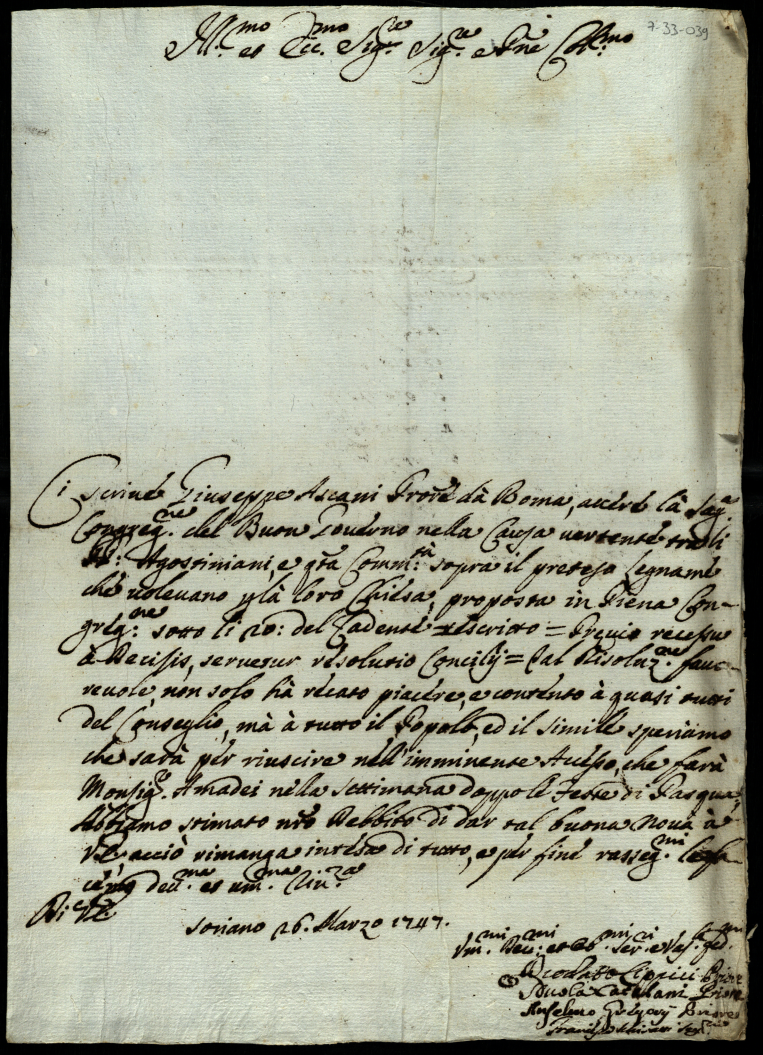 7-33-039
Ill.mo et Ecc.mo Sig.re Sig.re e Pne Col.mo
Ci scrive Giuseppe Ascani Pro're da Roma, avere la Sag.
Congreg.ne del Buon Governo nella Causa vertente tra li
PP: Agostiniani, e qta Comm.tà sopra il preteso Legname
che volevano p la loro Chiesa, proposta in Piena Con-
greg.ne sotto li 20: del Cadente rescritto = Previo recessu
à Decisis, servetur resolutio Concilij = Tal Risoluz.ne favo-
revole, non solo hà recato piacere, e contento à quasi tutti
del Conseglio, mà à tutto il Popolo, ed il simile speriamo
che sarà per riuscire nell'imminente che farà
Monsig.re Amadei nella settimana doppo le Feste di Pasqua,
Abbiamo stimato nro Debbito di dar tal buona nova à
V.E. acciò rimanga intesa di tutto, e per fine rasseg.mi
dev.ma et um.ma
Di V.E.
Soriano 26. Marzo 1747.
Um.mi Dev.mi et Ob.mi Ser.ri e Vas.
Priore
Catalani Priore
Anselmo Gregorij Priore
Seg.rio